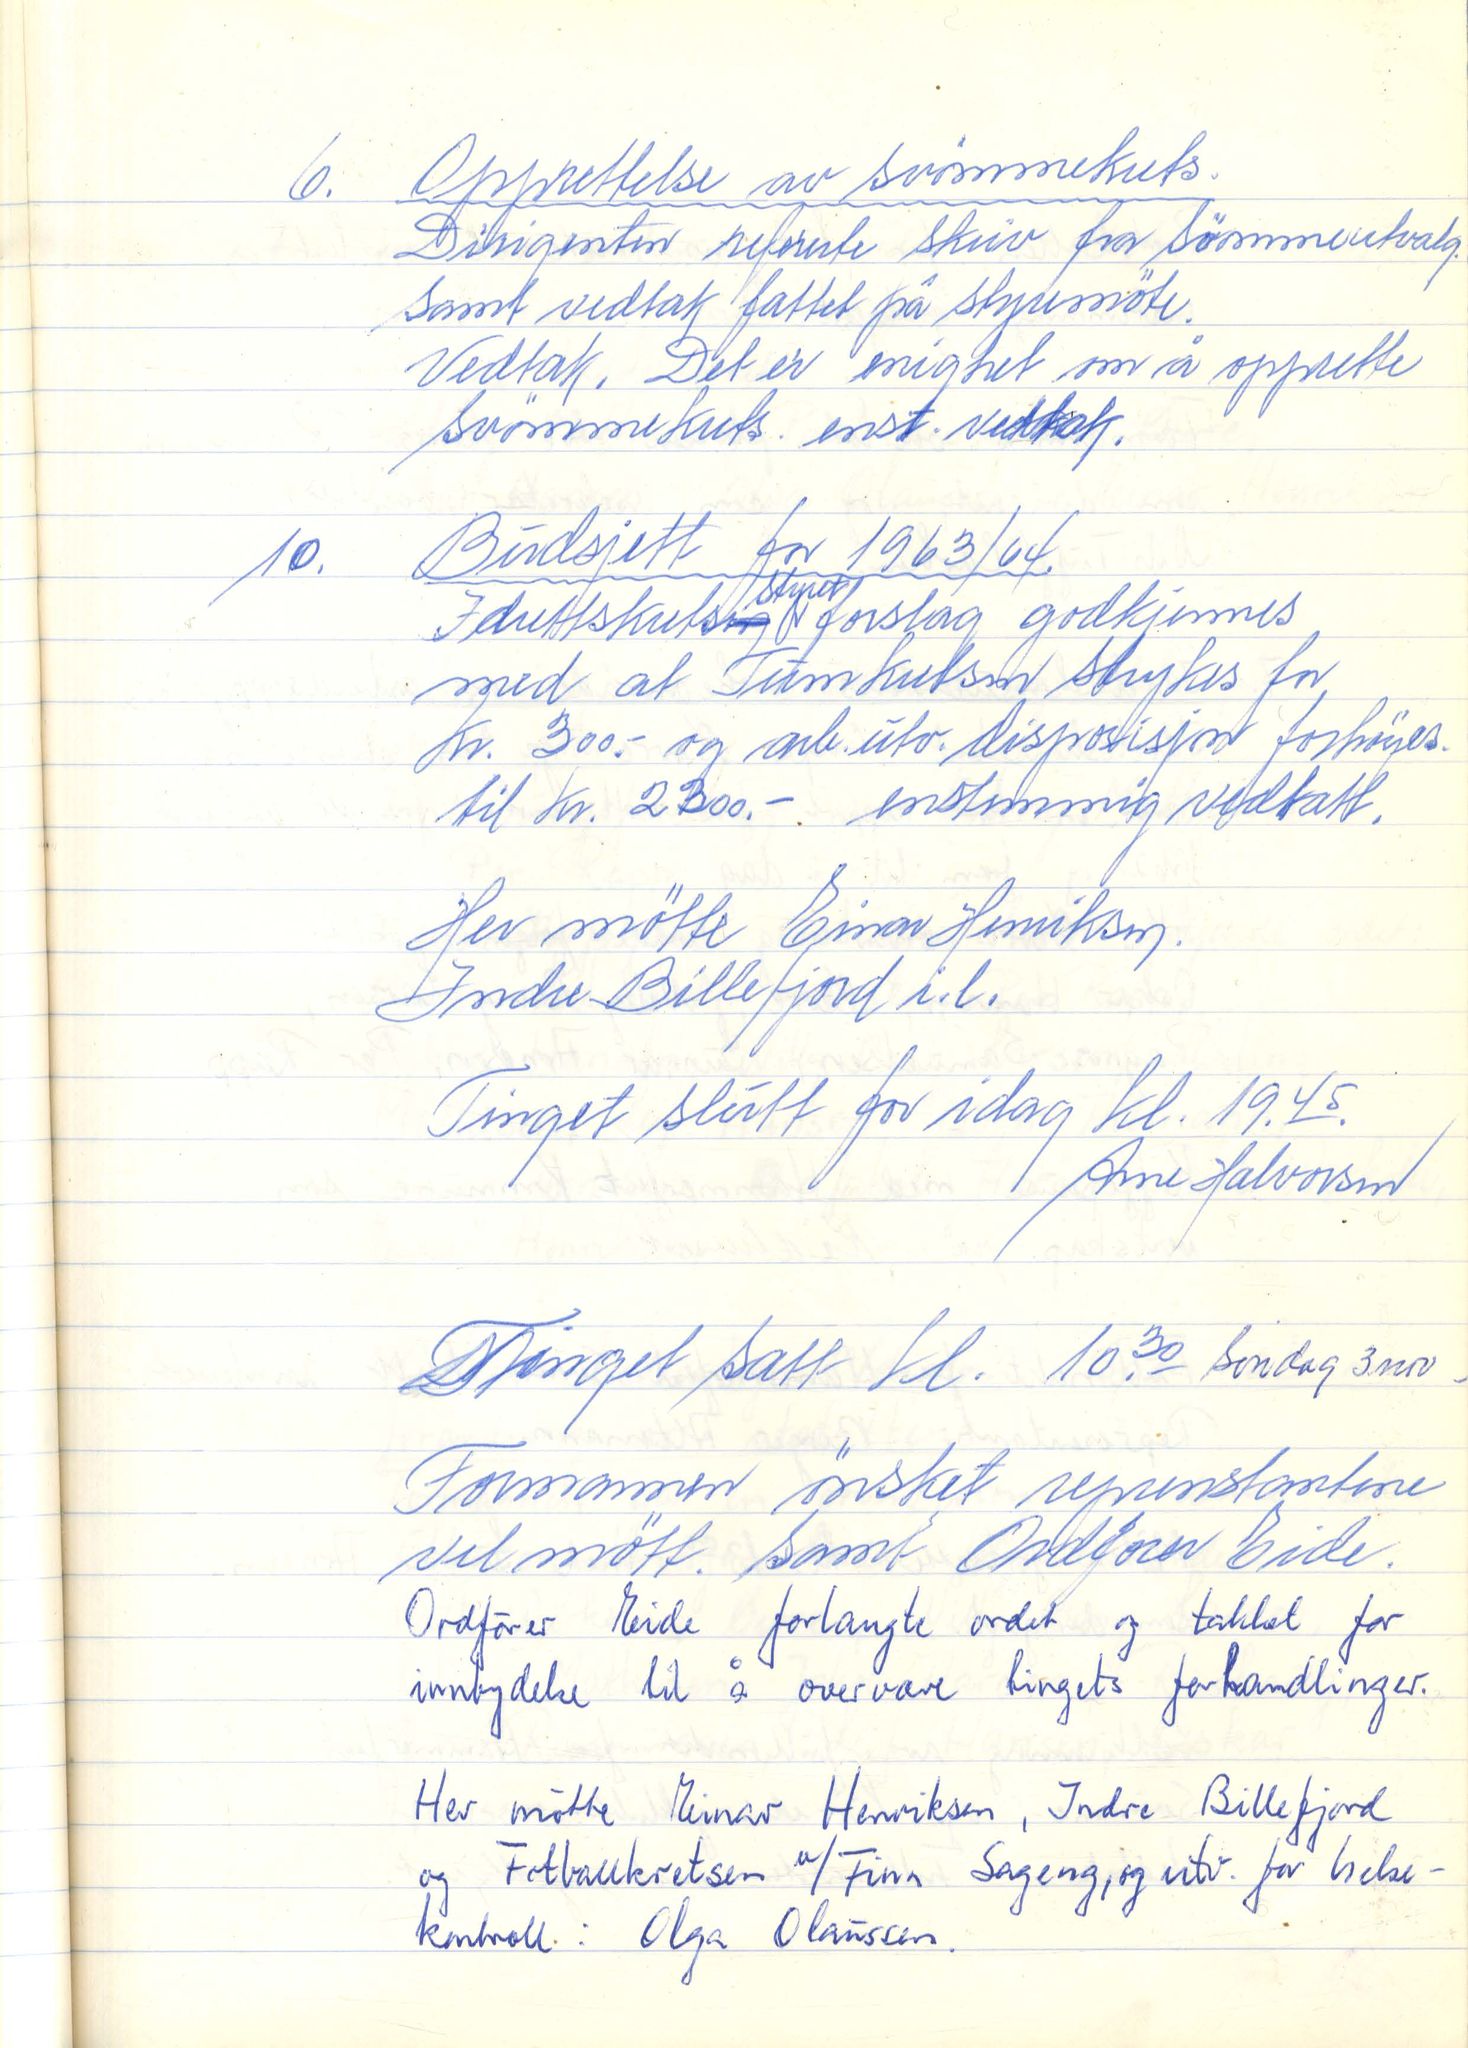 6. Opprettelse av svömmekrets.
Dirigenten refererte skriv fra Sömmeutvalg.
samt vedtak fattet på styremöte.
Vedtak. Det er enighet om å opprette
svömmekrets. enst. vedtak.
10. Budsjett for 1963/64.
Idrettskrets styrets forslag godkjennes
med at Turnkretsen strykes for
kr. 300.- og arb.utv. disposisjon forhöyes.
til kr. 2300.- enstemmig vedtatt.
Her mötte Einar Henriksen.
Indre Billefjord i.l.
Tinget slutt for idag kl. 19.45.
Arne Halvorsen
Tinget satt kl. 10.30 Söndag 3 nov
Formannen önsket reprenstantene
vel mött. samt Ordförer Eide.
Ordförer Eide forlangte ordet og takket for
innbydelse til å overvære tingets forhandlinger.
Her mötte Einar Henriksen, Indre Billefjord
og Fotballkretsen v/Finn Sageng, og utv. for helse-
kontroll: Olga Olaussen.